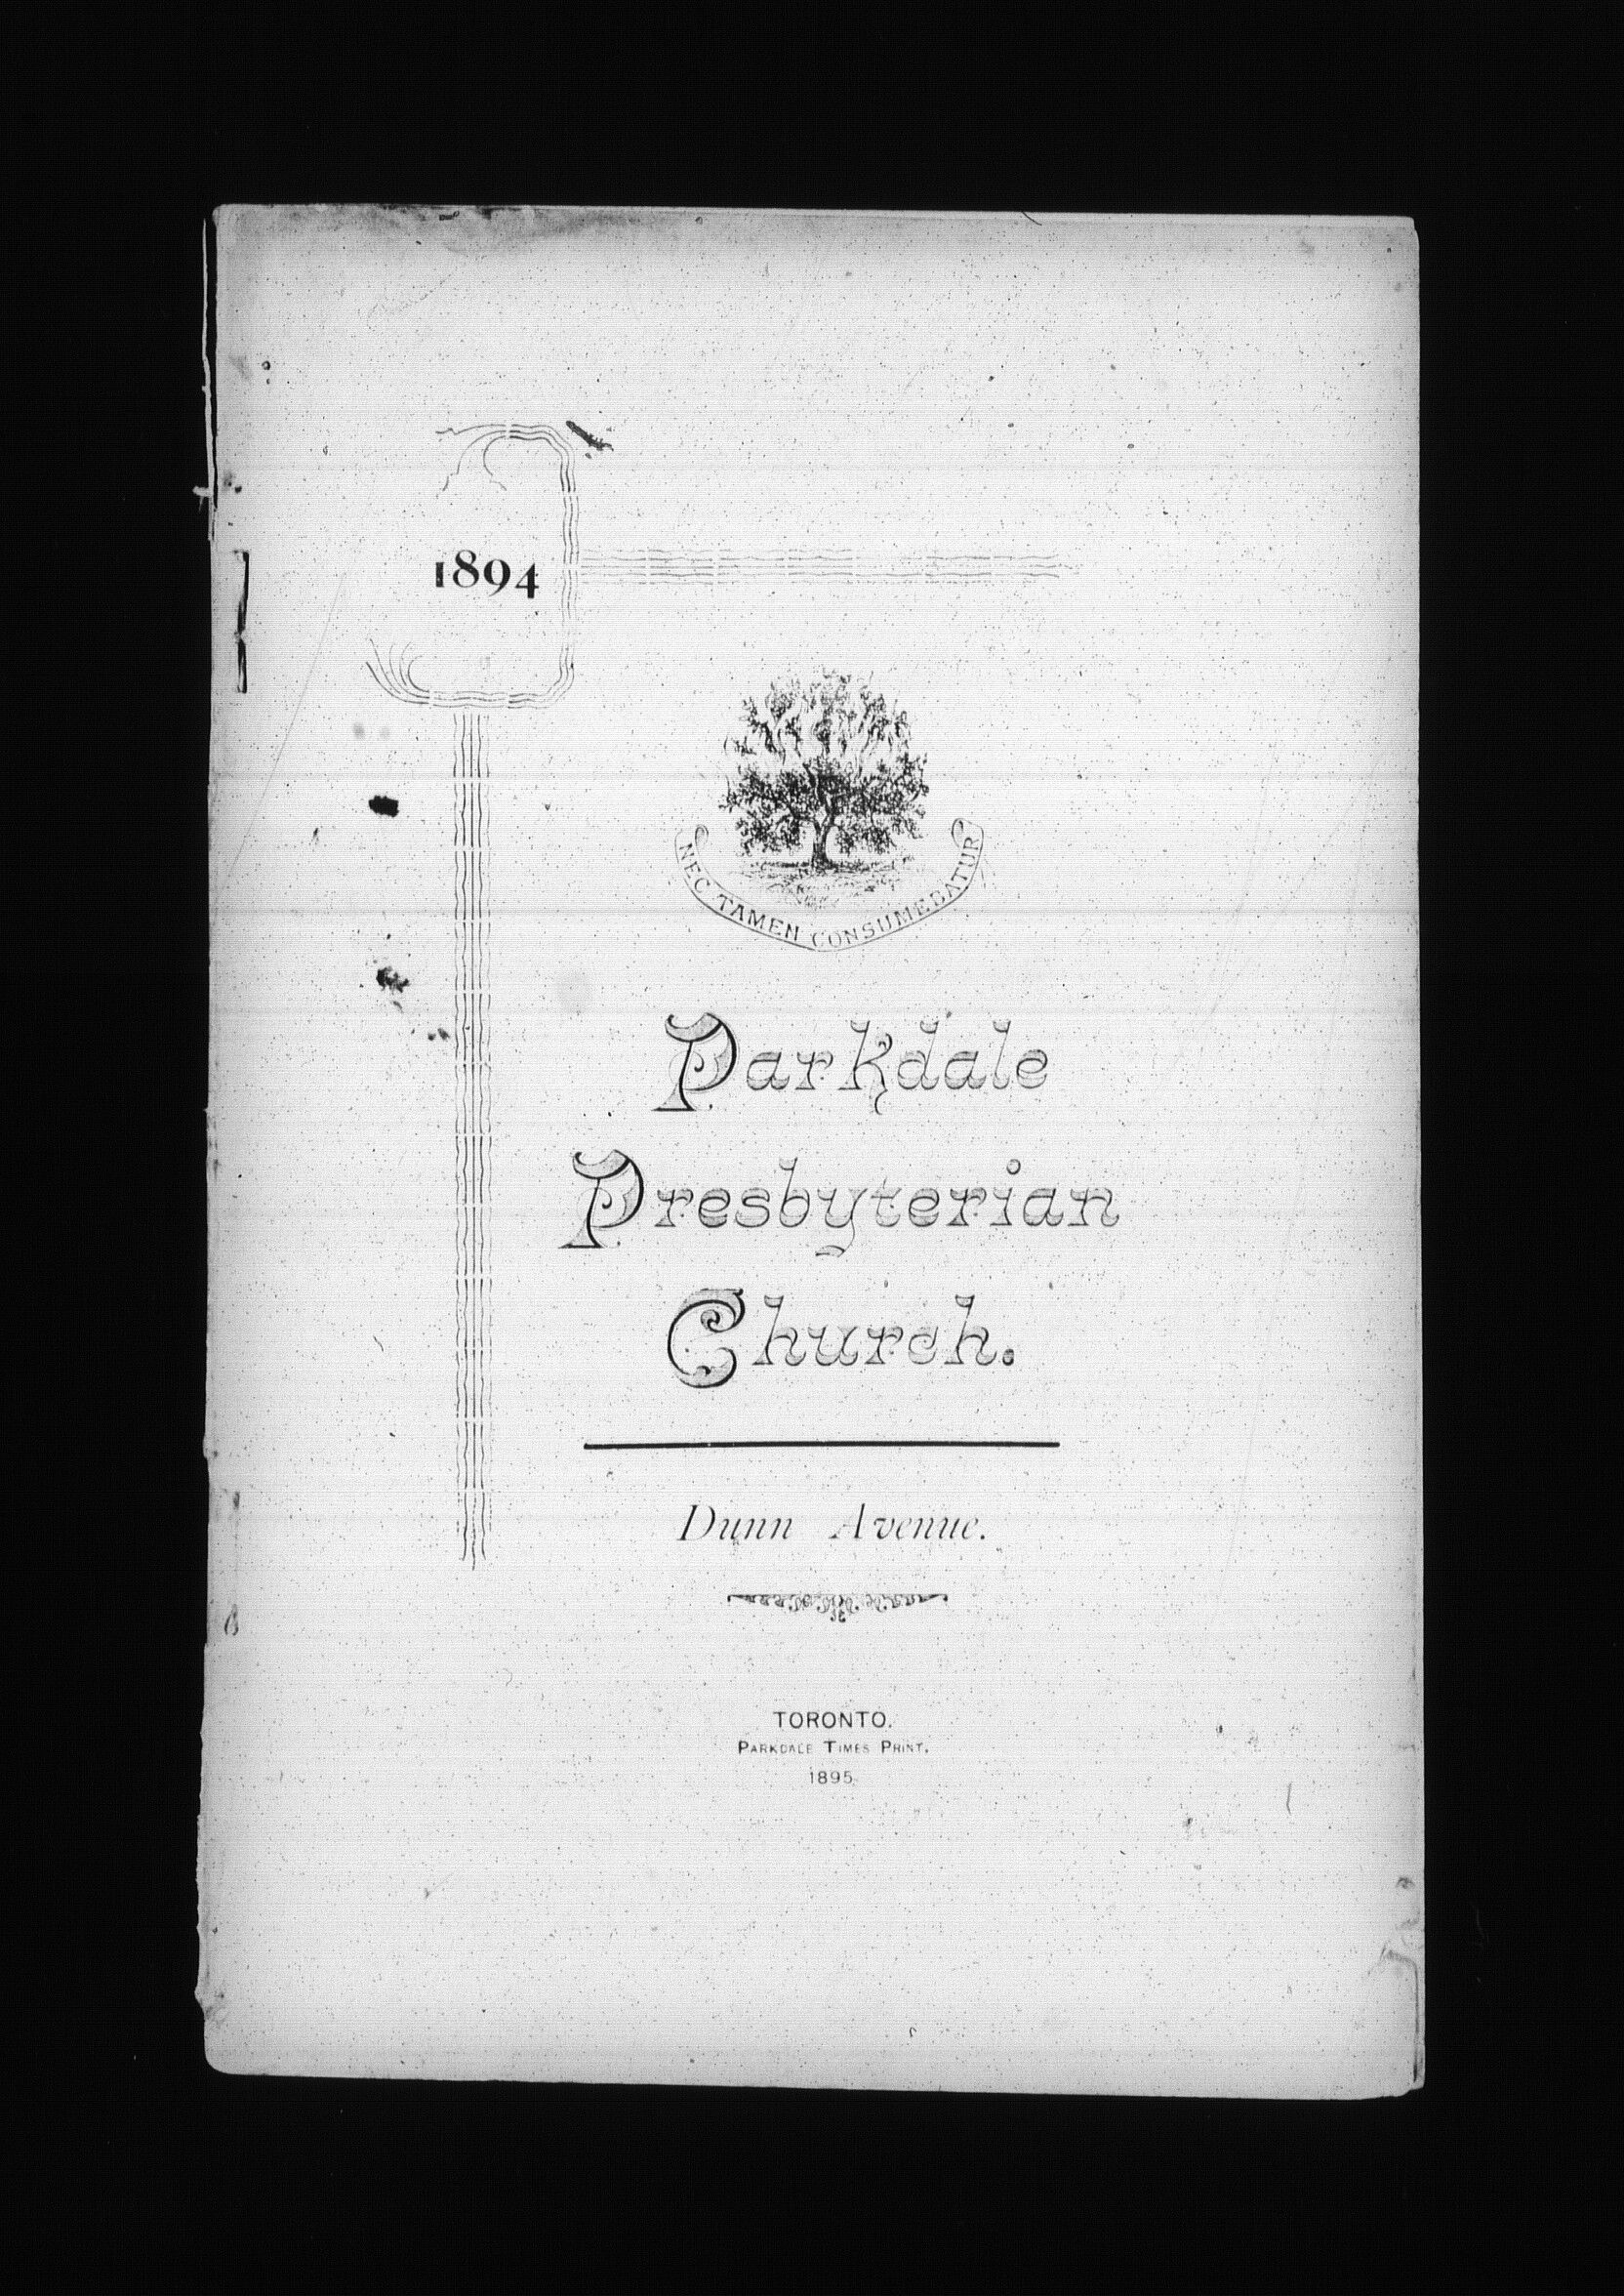 1894
NEC TAMEN CONSUMEBATUR
Parkdale
Presbyterian
Church.
Dunn Avenue.
TORONTO.
PARKDALE TIMES PRINT.
1895.